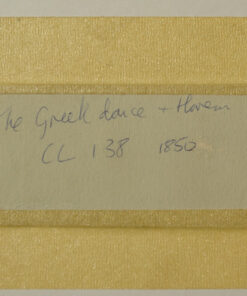 The Greek dance + Harem
CL 138 1850